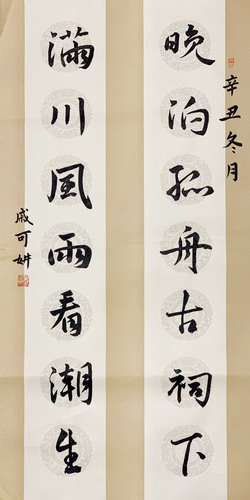 辛丑冬月
晚泊孤舟古祠下
满川风雨看潮生
戚可妌